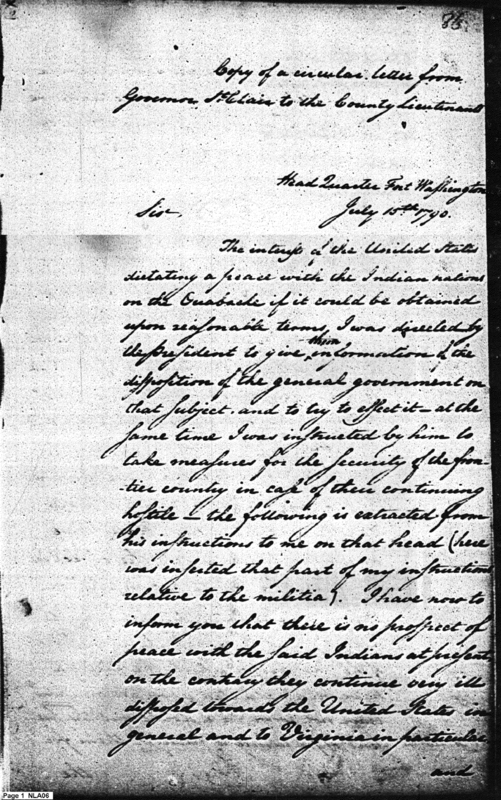 Copy of a circular letter from
Governor St Clair to the County Lieutenants
Head Quarter Fort Washington
July 15th 1790.
Sir,
The interest of the United States
dictating a peace with the Indian nations
on the Ouabache if it could be obtained
upon reasonable terms, I was directed by
the President to give them information of the
disposition of the general government on
that subject. and to try to effect it – at the
same time I was instructed by him to
take measures for the security of the fron-
-tier county in case of their continuing
hostile – the following is extracted from
his instructions to me on that head (here
was inserted that part of my instructions
relative to the militia). I have now to
inform you that there is no prospect of
peace with the said Indians at present,
on the contrary they continue very ill
disposed towards the United States in
general and to Virginia in particular
and
Page 1 NLA06